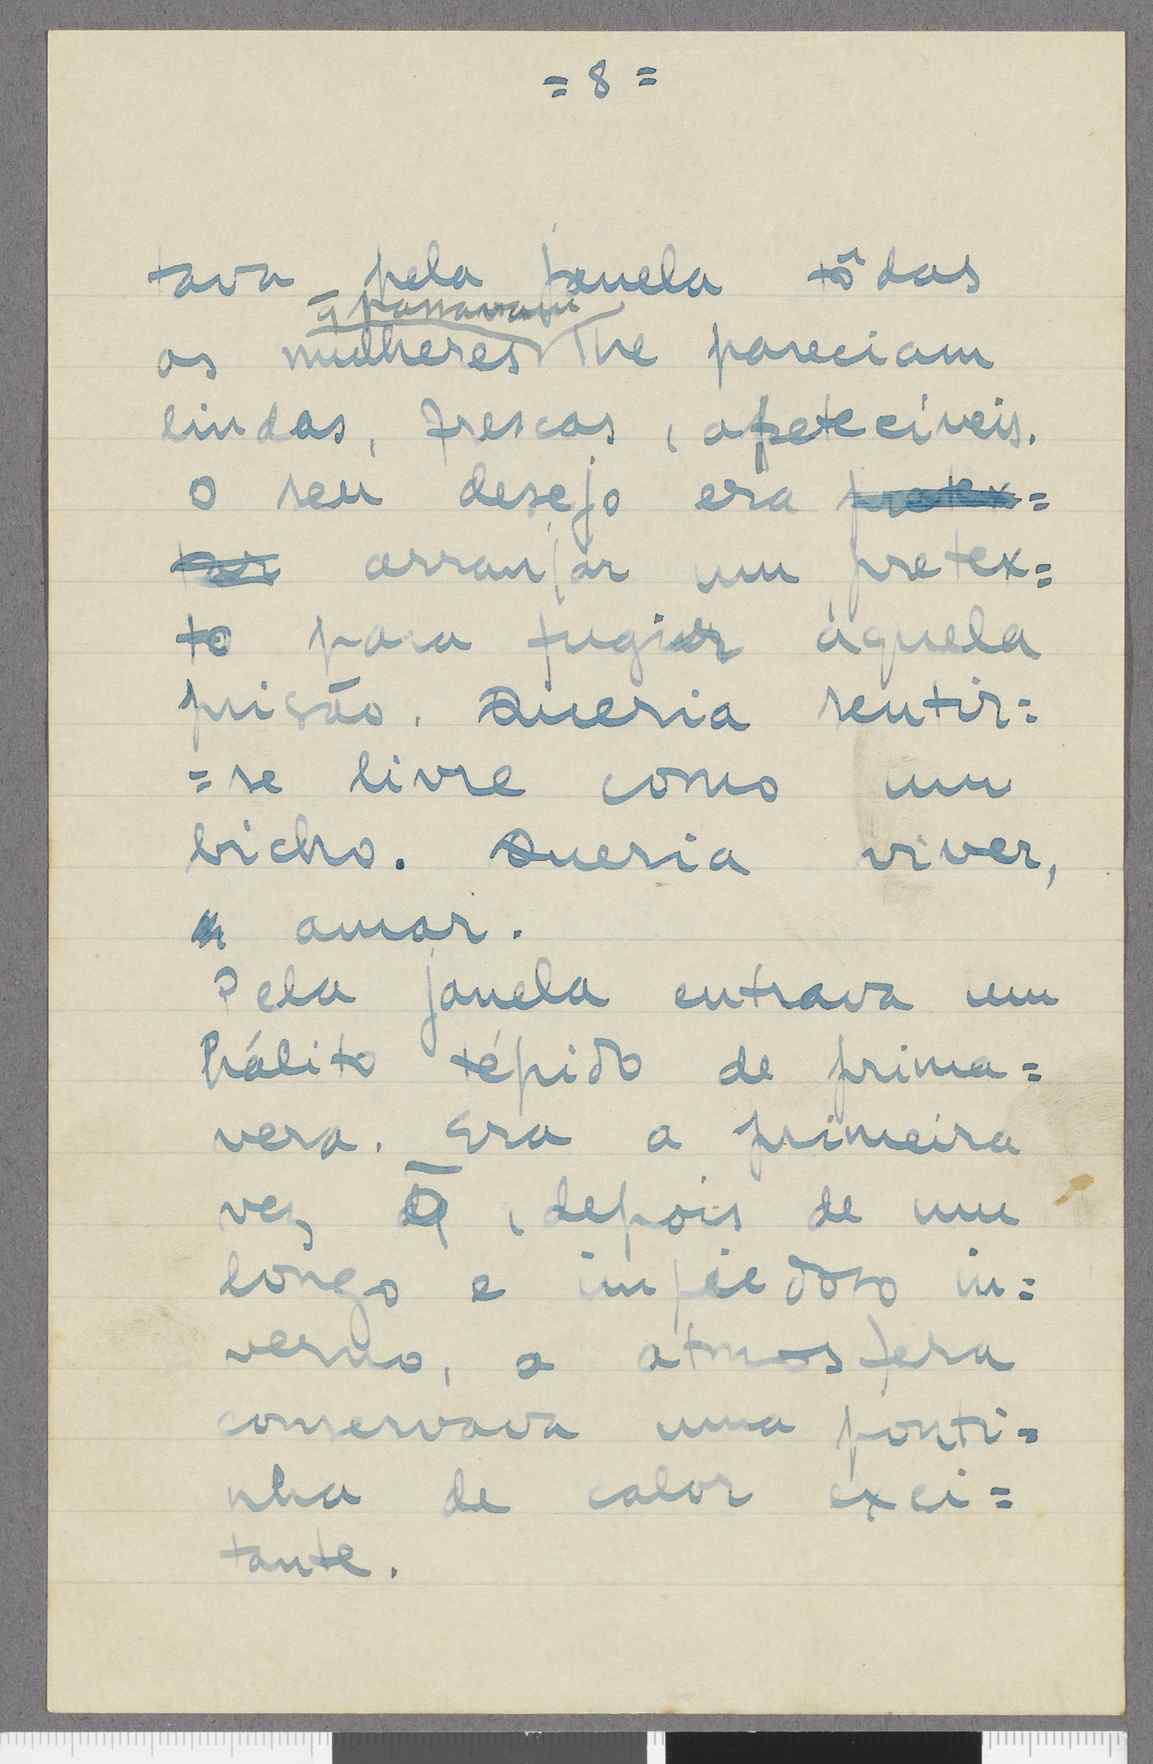 = 8 =
tava pela janela tôdas
q̄ passavam
as mulheres lhe pareciam
lindas, frescas, apetecíveis.
O seu desejo era pretex=
tar arranjar um pretex=
to para fugir àquela
prisão. Queria sentir=
=se livre como um
bicho. Queria viver,
amar.
Pela janela entrava um
hálito tépido de prima=
vera. Era a primeira
vez q̄, depois de um
longo e impiedoso in=
verno, a atmosfera
conservava uma ponti=
nha de calor exci=
tante.